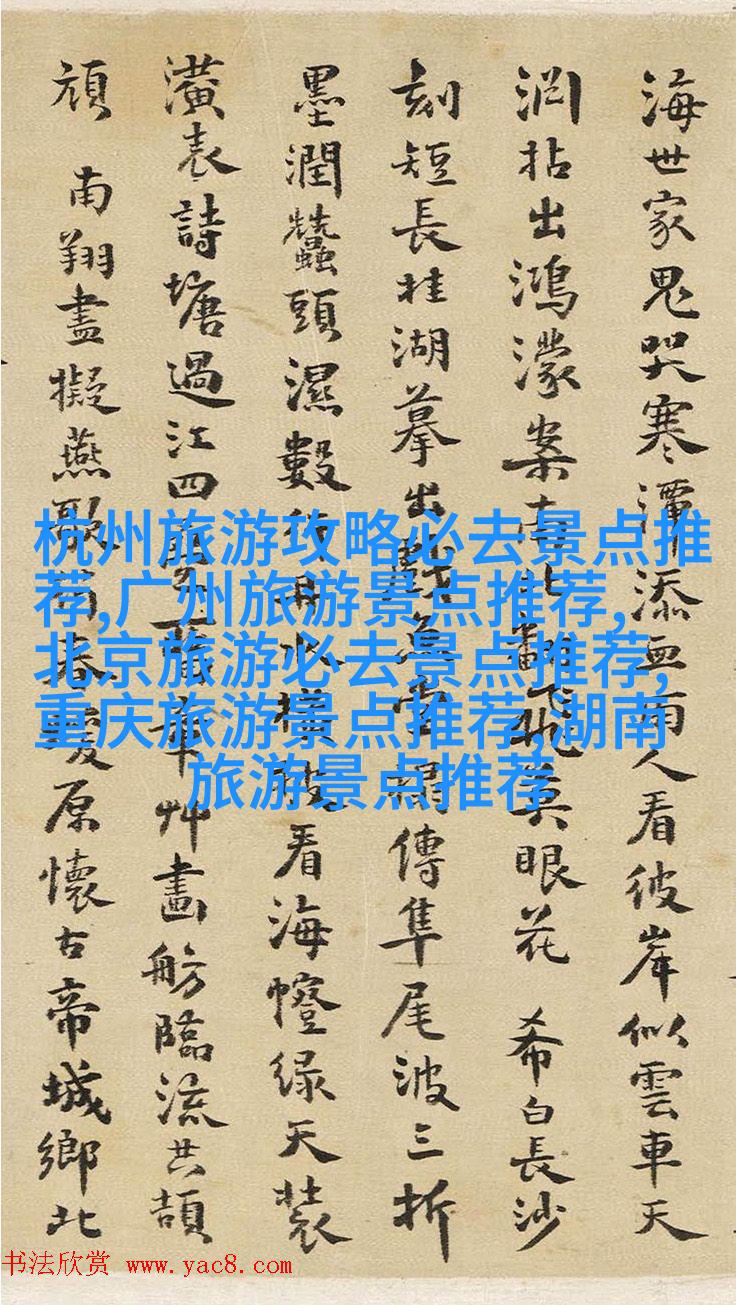 海世家鬼哭寒潭添血南人看彼岸似雲車天
淵拈出鴻濛案南北翻飛晃眼花 希白長沙
刻短長桂湖摹出戲魚堂榻傳隼尾波三折
墨潤蠶頭濕數行海看海幢绿天裝
潢表詩塘過江四草畫舫臨流共頡
頏 南翔盡擬燕歌原懷古帝城鄉北
杭州旅游攻略必去景点推
荐,广州旅游景点推荐,
北京旅游必去景点推荐,
重庆旅游景点推荐,湖南
旅游景点推荐
书法欣赏 www.yac8.com